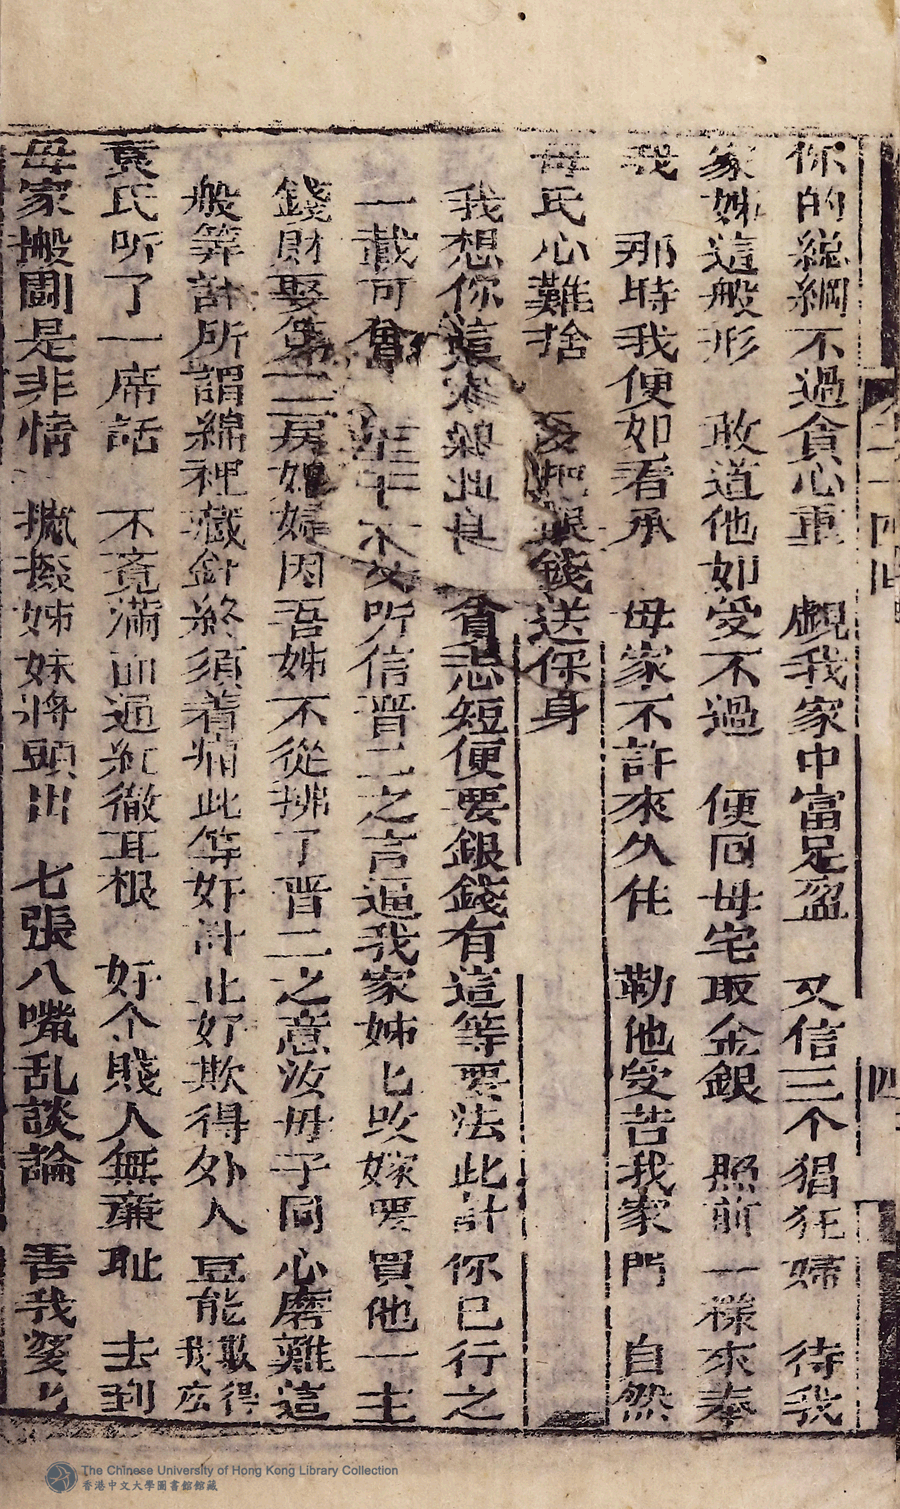 你的緃綱不過貪心重 覷我家中富足盈 又信三个猖狂婦 待我
家姊這般形 敢道他如受不過 便回母宅取金銀 照前一樣來奉
我 那時我便如看承 母家不許來久住 勒他受苦我家門 自然
母氏心難捨 銀錢送保身
我想你這 此身 貪悲短便要銀錢有這等要法此計你已行之
一載可 听信晋二之言逼我家姊上改嫁要買他一主
錢財娶第三房媳婦因吾姊不從拂了晋二之意汝毋子同心磨難這
般筭計所謂綿裡藏針終須着痛此等奸計止好欺得外人豆能欺得我広
袁氏听了一席話 不覔滿面通紅徹耳根 好个賤人無亷耻 去到
母家搬鬪是非情 攛掇姊妹將頭出 七張八嘴乱談論 害我婆上
二十四回
四
The Chinese University of Hong Kong Library Collection
香港中文大學圖書館館藏